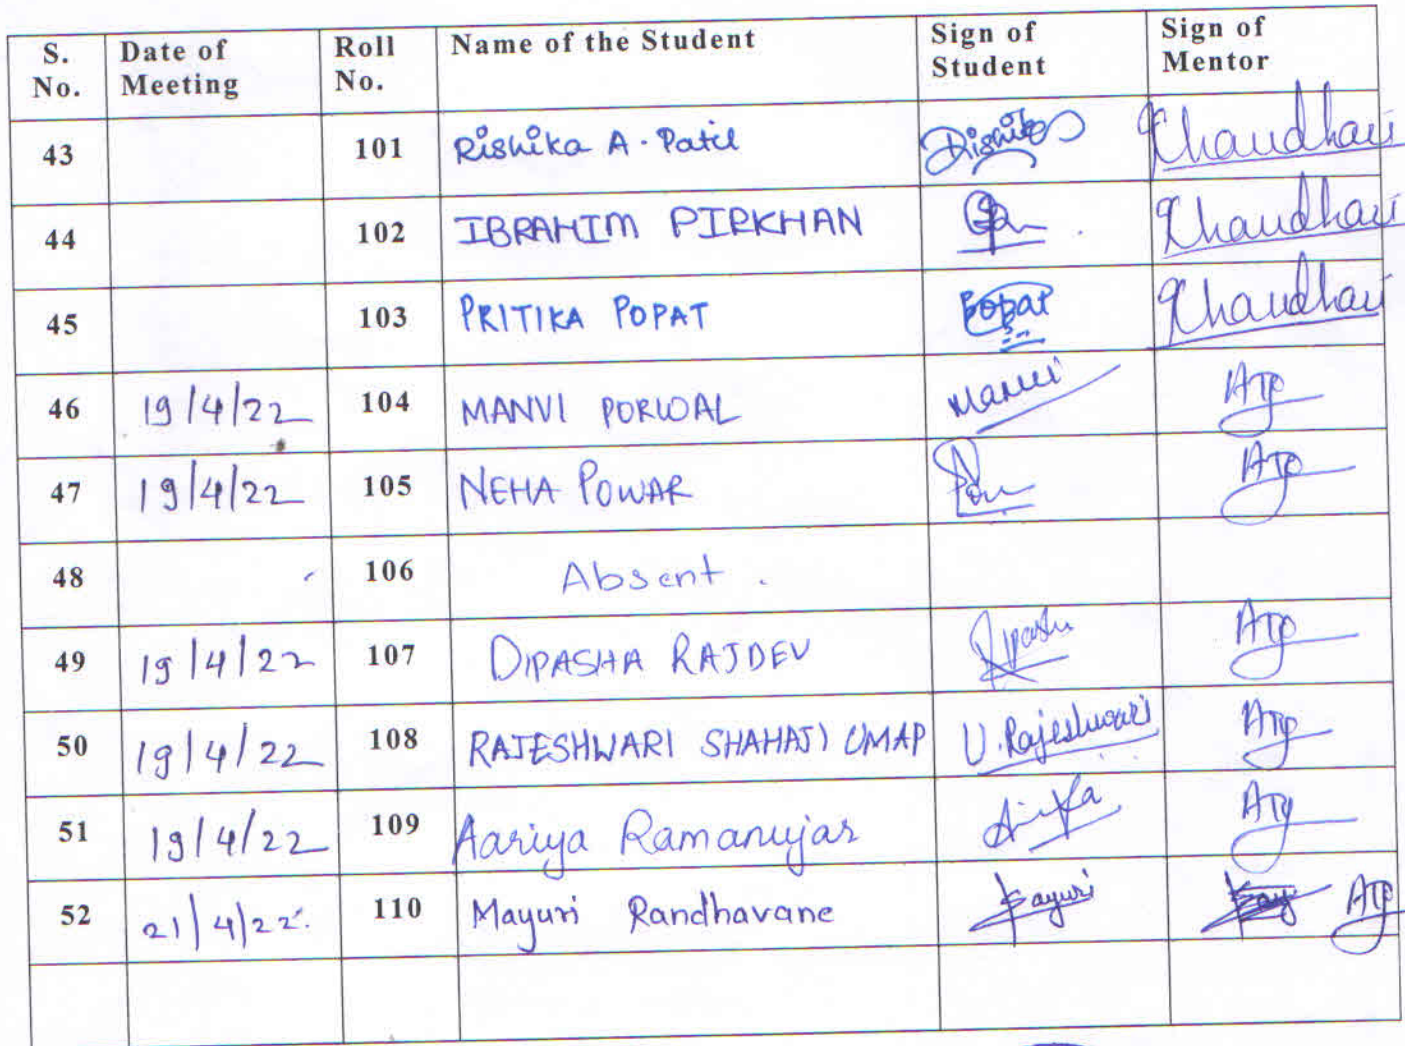 S. No. Date of Meeting Roll No. Name of the Student Sign of Student Sign of Mentor
43 101 Rishika A. Patil Rishika Chaudhari
44 102 IBRAHIM PIRKHAN Chaudhari
45 103 PRITIKA POPAT Popat Chaudhari
46 19/4/22 104 MANVI PORWAL Manvi
47 19/4/22 105 NEHA POWAR
48 106 Absent.
49 19/4/22 107 DIPASHA RAJDEV
50 19/4/22 108 RAJESHWARI SHAHAJI UMAP U.Rajeshwari
51 19/4/22 109 Aariya Ramanujar
52 21/4/22. 110 Mayuri Randhavane